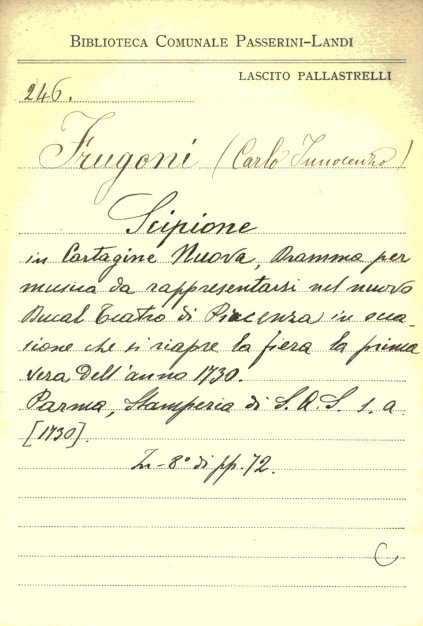 BIBLIOTECA COMUNALE PASSERINI-LANDI
LASCITO PALLASTRELLI
246.
Frugoni (Carlo Innocenzo)
Scipione
in Cartagine Nuova, Dramma per
musica da rappresentarsi nel nuovo
Ducal Teatro di Piacenza in occa-
sione che si riapre la fiera la prima
vera dell'anno 1730.
Parma, Stamperia di S. A. S. s. a.
[1730].
In-8° di pp. 72.
C